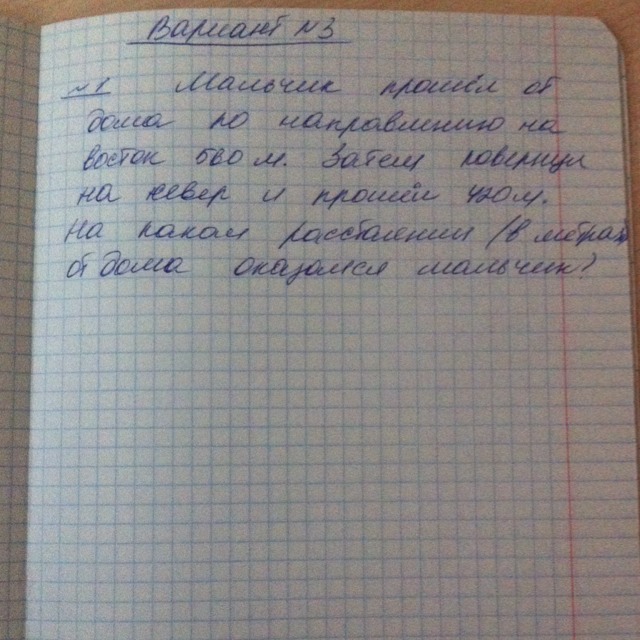 Вариант №3
№1 Мальчик прошёл от
дома по направлению на
восток м. Затем повернул
на север и прошёл м.
На каком расстоянии (в метрах)
от дома оказался мальчик?